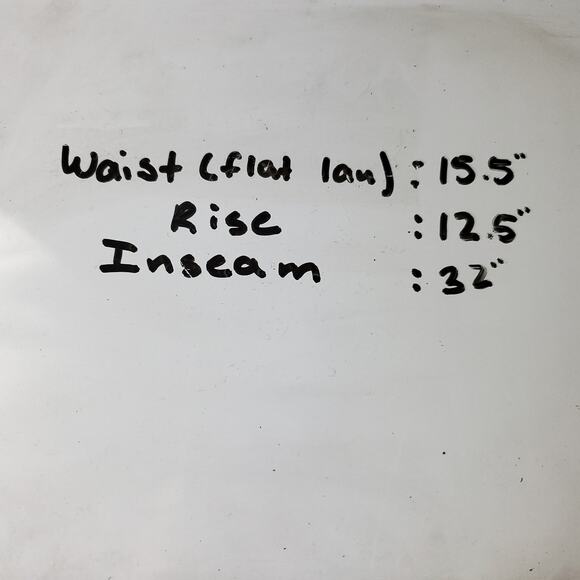 Waist (flat lay) : 15.5"
Rise : 12.5"
Inseam : 32"